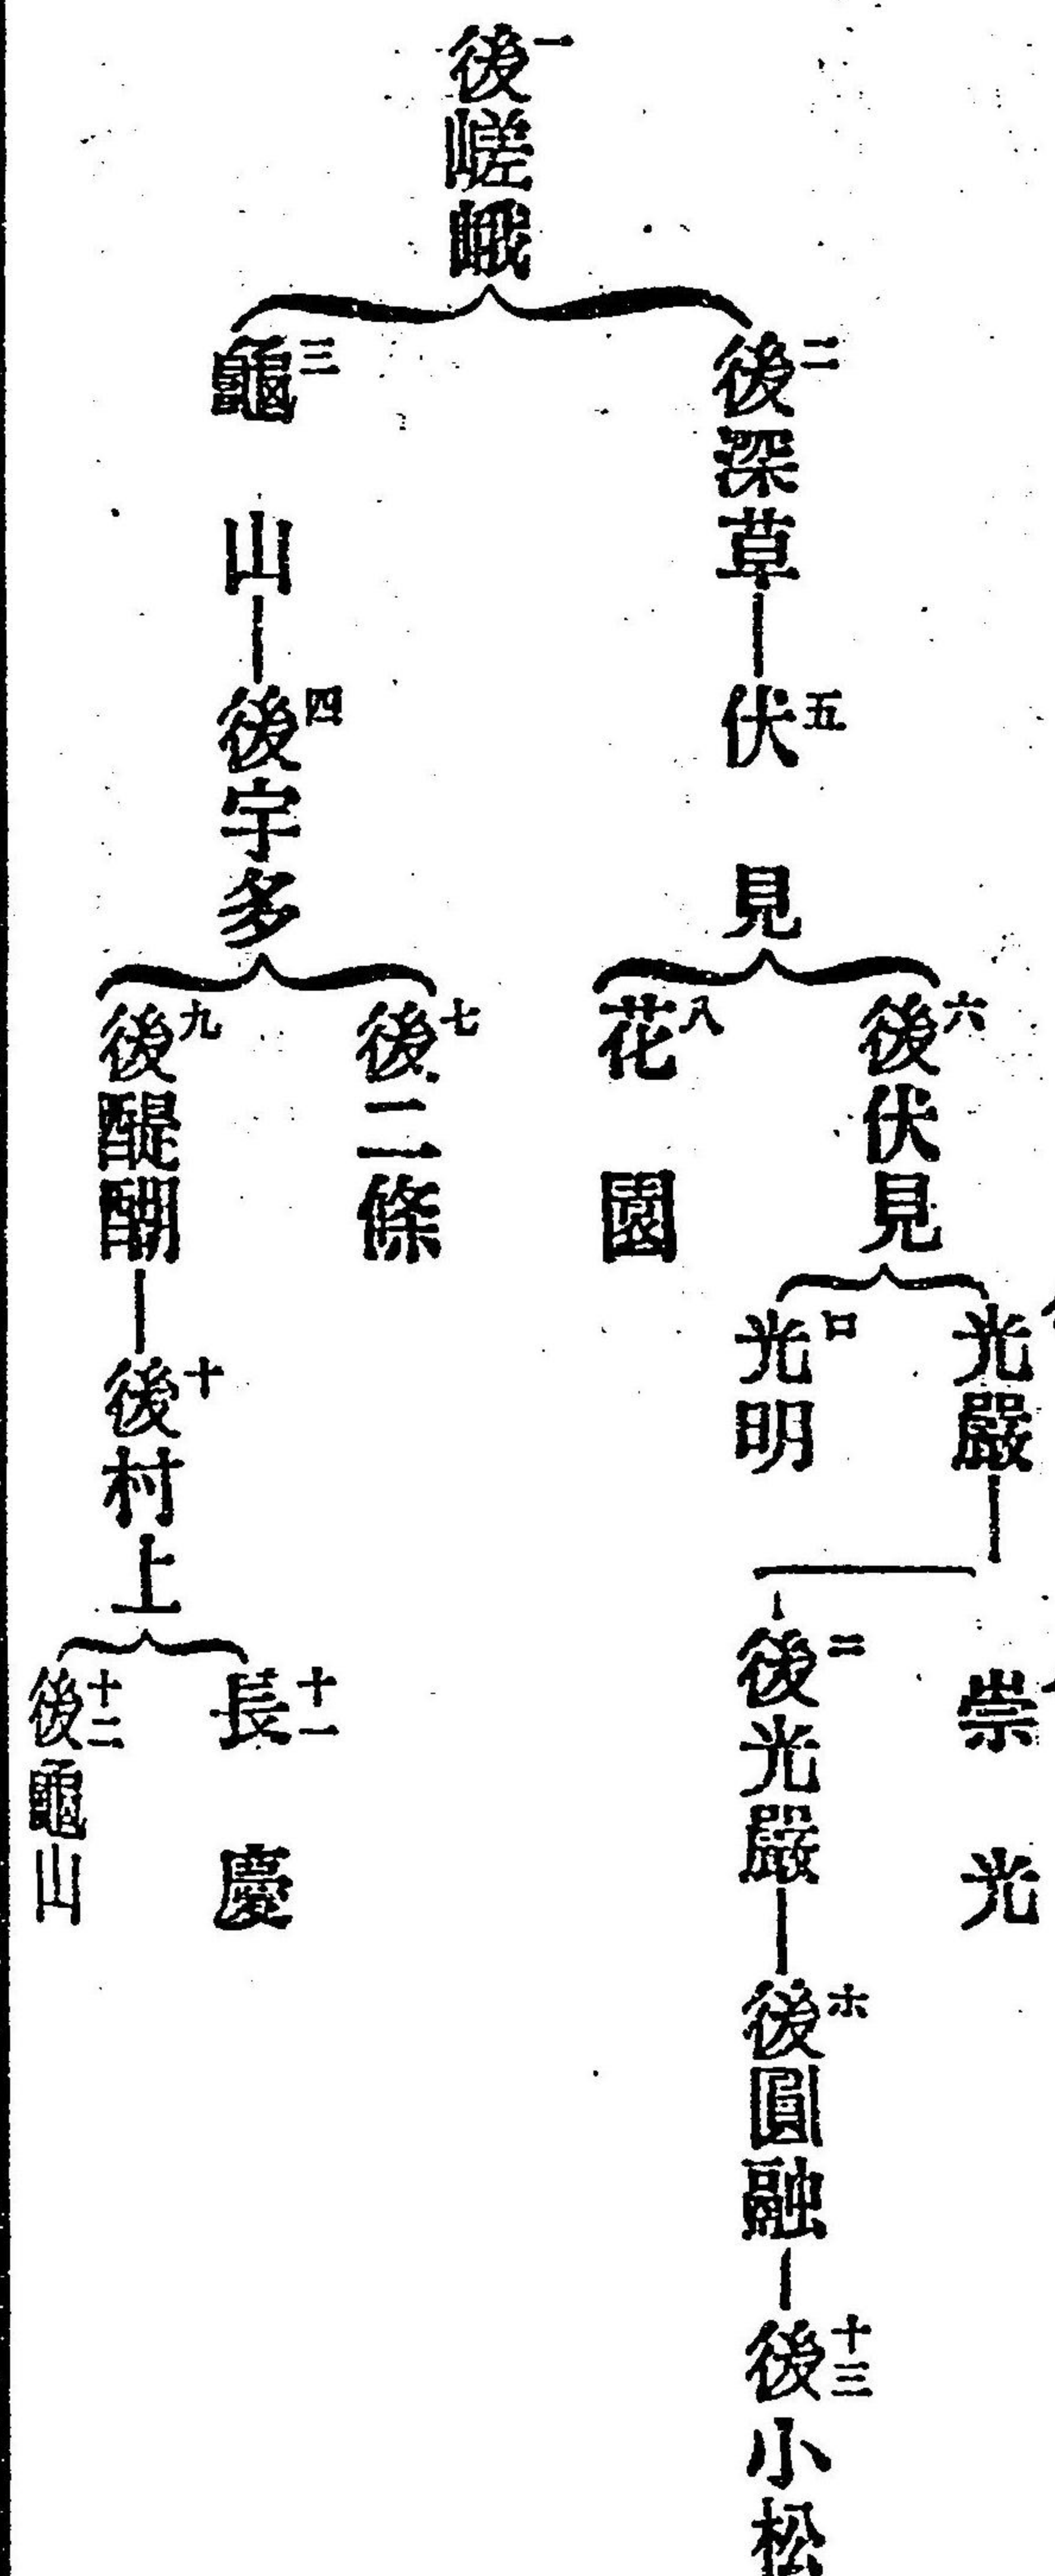 一 後嵯峨
二 後深草
五 伏見
六 後伏見
光嚴
崇光
ロ 光明
ニ 後光嚴
ホ 後圓融
十三 後小松
八 花園
三 龜山
四 後宇多
七 後二條
九 後醍醐
十 後村上
十一 長慶
十二 後龜山